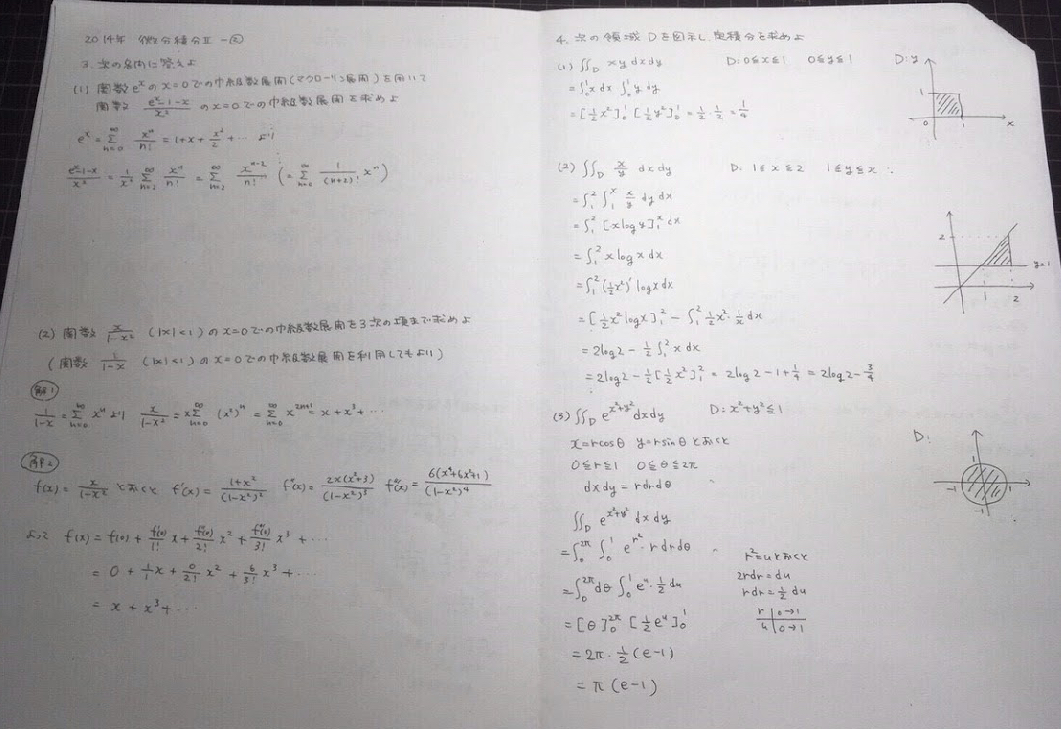 2014年 微分積分Ⅱ -②
3. 次の各問に答えよ
(1) 関数 e^x の x=0 での巾級数展開(マクローリン展開)を用いて
関数 (e^x-1-x)/x² の x=0 での巾級数展開を求めよ
e^x = Σ_{n=0}^∞ x^n/n! = 1+x+x²/2+… より
(e^x-1-x)/x² = 1/x² Σ x^n/n! = Σ x^{n-2}/n! (= Σ 1/(n+2)! x^n)
(2) 関数 x/(1-x²) (|x|<1) の x=0 での巾級数展開を3次の項まで求めよ
(関数 1/(1-x) (|x|<1) の x=0 での巾級数展開を利用してもよい)
解1
1/(1-x) = Σ_{n=0}^∞ x^n より x/(1-x²) = x Σ_{n=0}^∞ (x²)^n = Σ_{n=0}^∞ x^{2n+1} = x+x³+…
解2
f(x) = x/(1-x²) とおくと f'(x) = (1+x²)/(1-x²)² f''(x) = 2x(x²+3)/(1-x²)³ f'''(x) = 6(x⁴+6x²+1)/(1-x²)⁴
よって f(x) = f(0) + f'(0)/1! x + f''(0)/2! x² + f'''(0)/3! x³ + …
= 0 + 1/1 x + 0/2! x² + 6/3! x³ + …
= x + x³ + …
4. 次の領域 D を図示し、定積分を求めよ
(1) ∬_D xy dxdy D: 0≦x≦1 0≦y≦1
= ∫_0^1 x dx ∫_0^1 y dy
= [1/2 x²]_0^1 [1/2 y²]_0^1 = 1/2・1/2 = 1/4
D: y
1
0 1 x
(2) ∬_D x/y dxdy D: 1≦x≦2 1≦y≦x
= ∫_1^2 ∫_1^x x/y dy dx
= ∫_1^2 [x log y]_1^x dx
= ∫_1^2 x log x dx
= ∫_1^2 (1/2 x²)' log x dx
= [1/2 x² log x]_1^2 - ∫_1^2 1/2 x²・1/x dx
= 2log2 - 1/2 ∫_1^2 x dx
= 2log2 - 1/2 [1/2 x²]_1^2 = 2log2 - 1 + 1/4 = 2log2 - 3/4
2
y=1
1 2
(3) ∬_D e^{x²+y²} dxdy D: x²+y²≦1
x=rcosθ y=rsinθ とおくと
0≦r≦1 0≦θ≦2π
dxdy = rdrdθ
∬_D e^{x²+y²} dxdy
= ∫_0^{2π} ∫_0^1 e^{r²}・rdrdθ
= ∫_0^{2π} dθ ∫_0^1 e^u・1/2 du
= [θ]_0^{2π} [1/2 e^u]_0^1
= 2π・1/2 (e-1)
= π(e-1)
r²=u とおくと
2rdr = du
rdr = 1/2 du
r | 0→1
u | 0→1
D:
1
-1 1
-1